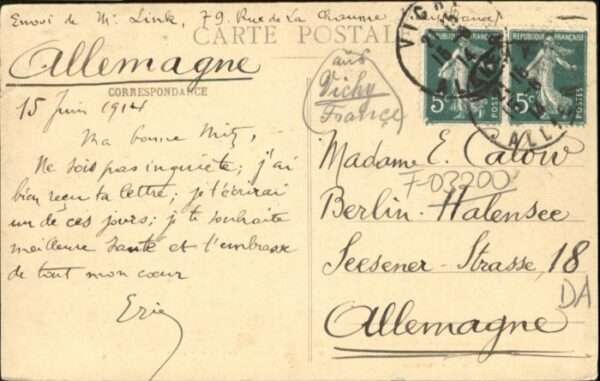 Envoi de Mr Link, 79, Rue de La Chaume
CARTE POSTALE
Allemagne
CORRESPONDANCE
15 Juin 1914
Ma bonne Mitz,
Ne sois pas inquiète; j'ai
bien reçu ta lettre; je t'écrirai
un de ces jours; je te souhaite
meilleure santé et t'embrasse
de tout mon cœur
Eric
aus
Vichy
France
RÉPUBLIQUE FRANÇAISE
5c
POSTES
RÉPUBLIQUE FRANÇAISE
5c
POSTES
VICHY
ALLIER
Madame E. Calow
F-03200
Berlin-Halensee
Seesener-Strasse, 18
DA
Allemagne